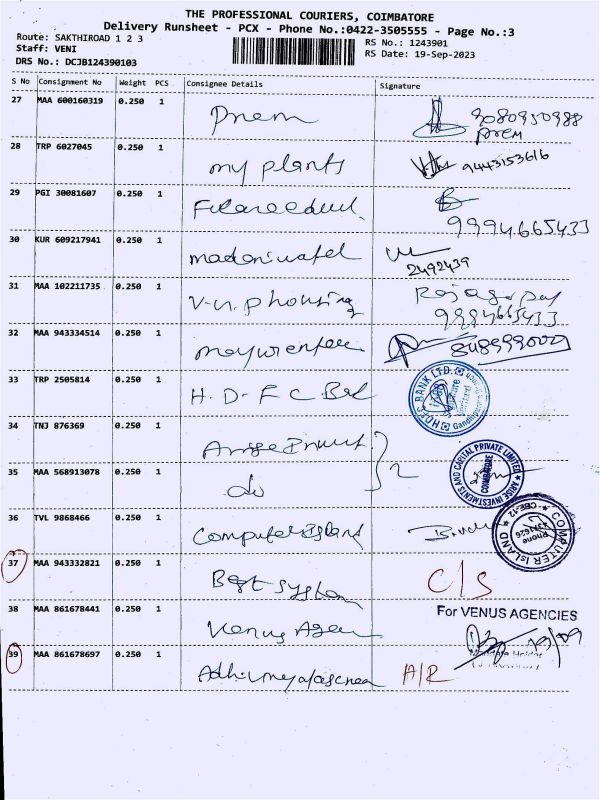 THE PROFESSIONAL COURIERS, COIMBATORE
Delivery Runsheet - PCX - Phone No.:0422-3505555 - Page No.:3
Route: SAKTHIROAD 1 2 3
RS No.: 1243901
Staff: VENI
RS Date: 19-Sep-2023
DRS No.: DCJB124390103
S No Consignment No Weight PCS Consignee Details Signature
27 MAA 600160319 0.250 1 Prem 9080950988
prem
28 TRP 6027045 0.250 1 my plants 9443153616
29 PGI 30081607 0.250 1
9994665433
30 KUR 609217941 0.250 1
2492439
31 MAA 102211735 0.250 1 V.n.p housing Rajagopal
9994665433
32 MAA 943334514 0.250 1
33 TRP 2505814 0.250 1 H.D.F.C Bak HDFC BANK LTD.
34 TNJ 876369 0.250 1
35 MAA 568913078 0.250 1 do 2 ARISE INVESTMENTS AND CAPITAL PRIVATE LIMITED COIMBATORE
36 TVL 9868466 0.250 1 Computer Island COMPUTER ISLAND CBE-12 Phone
37 MAA 943332821 0.250 1 Best System C/S
38 MAA 861678441 0.250 1 Venus Agen For VENUS AGENCIES
39 MAA 861678697 0.250 1 A/R